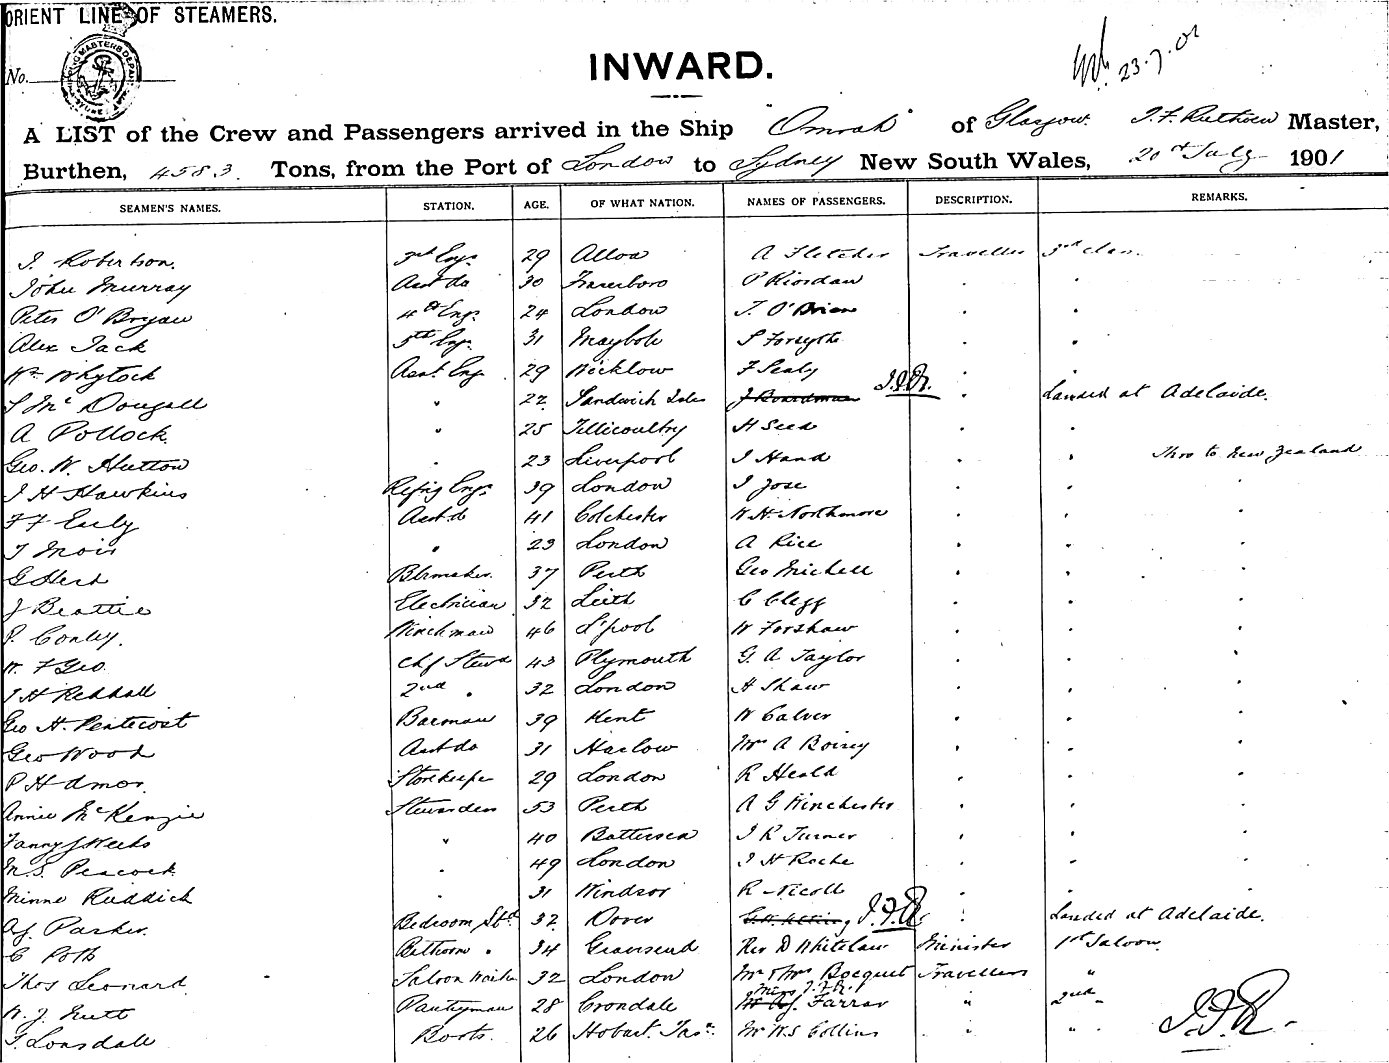 ORIENT LINE OF STEAMERS.
INWARD.
23.7.01
No.
A LIST of the Crew and Passengers arrived in the Ship "Omrah" of Glasgow. J. F. Ruthven Master,
Burthen, 4583. Tons, from the Port of London to Sydney New South Wales, 20th July 1901
SEAMEN'S NAMES. STATION. AGE. OF WHAT NATION. NAMES OF PASSENGERS. DESCRIPTION. REMARKS.
J. Robertson. 3rd Engr 29 Alloa A Fletcher Traveller 3rd class.
John Murray Asst do 30 Fraserboro P Riordan
Peter O'Bryan 4th Engr 24 London J. O'Brien
Alex Jack 5th Engr 31 Maybole S Forsythe
Wm Whytock Asst Eng 29 Wicklow F Sealy
S McDougall " 22 Sandwich Isles J Boardman J.F.R. Landed at Adelaide.
A Pollock. " 25 Tillicoultry H Seed
Geo. W. Hutton 23 Liverpool J Hand Thro to New Zealand
J H Hawkins Refrig Engr 39 London J Jose
F F Early Asst do 41 Colchester W. H. Northmore
23 London A Rice
G Herd Blrmaker. 37 Perth Geo Michell
J Beattie Electrician 32 Leith C Clegg
P. Conley. Winchman 46 L'pool W Forshaw
W. F Geo. Chf Stewd 43 Plymouth G. A Taylor
J H Redhall 2nd " 32 London H Shaw
Geo H. Pentecost Barman 39 Kent W Calver
Geo Wood Asst do 31 Harlow Mrs A
P Storekeeper 29 London R Heald
Annie McKenzie Stewardess 53 Perth A G Winchester
Fanny J Weeks " 40 Battersea J R Turner
M. S. Peacock 49 London J H Roche
Minnie Ruddick 31 Windsor R Nicoll
A J. Parker. Bedroom Std 32 Dover J.F.R. Landed at Adelaide.
C Bathroom " 34 Gravesend Rev D Whitelaw Minister 1st Saloon.
Thos Leonard Saloon Waiter 32 London Mr & Mrs Bocquet Travellers "
W. J. Nutt Pantryman 28 Crondale Miss J.F.R. Farrar " 2nd "
F. Lonsdale Boots. 26 Hobart. Tasa Mr W. S. Collins " " J.F.R.